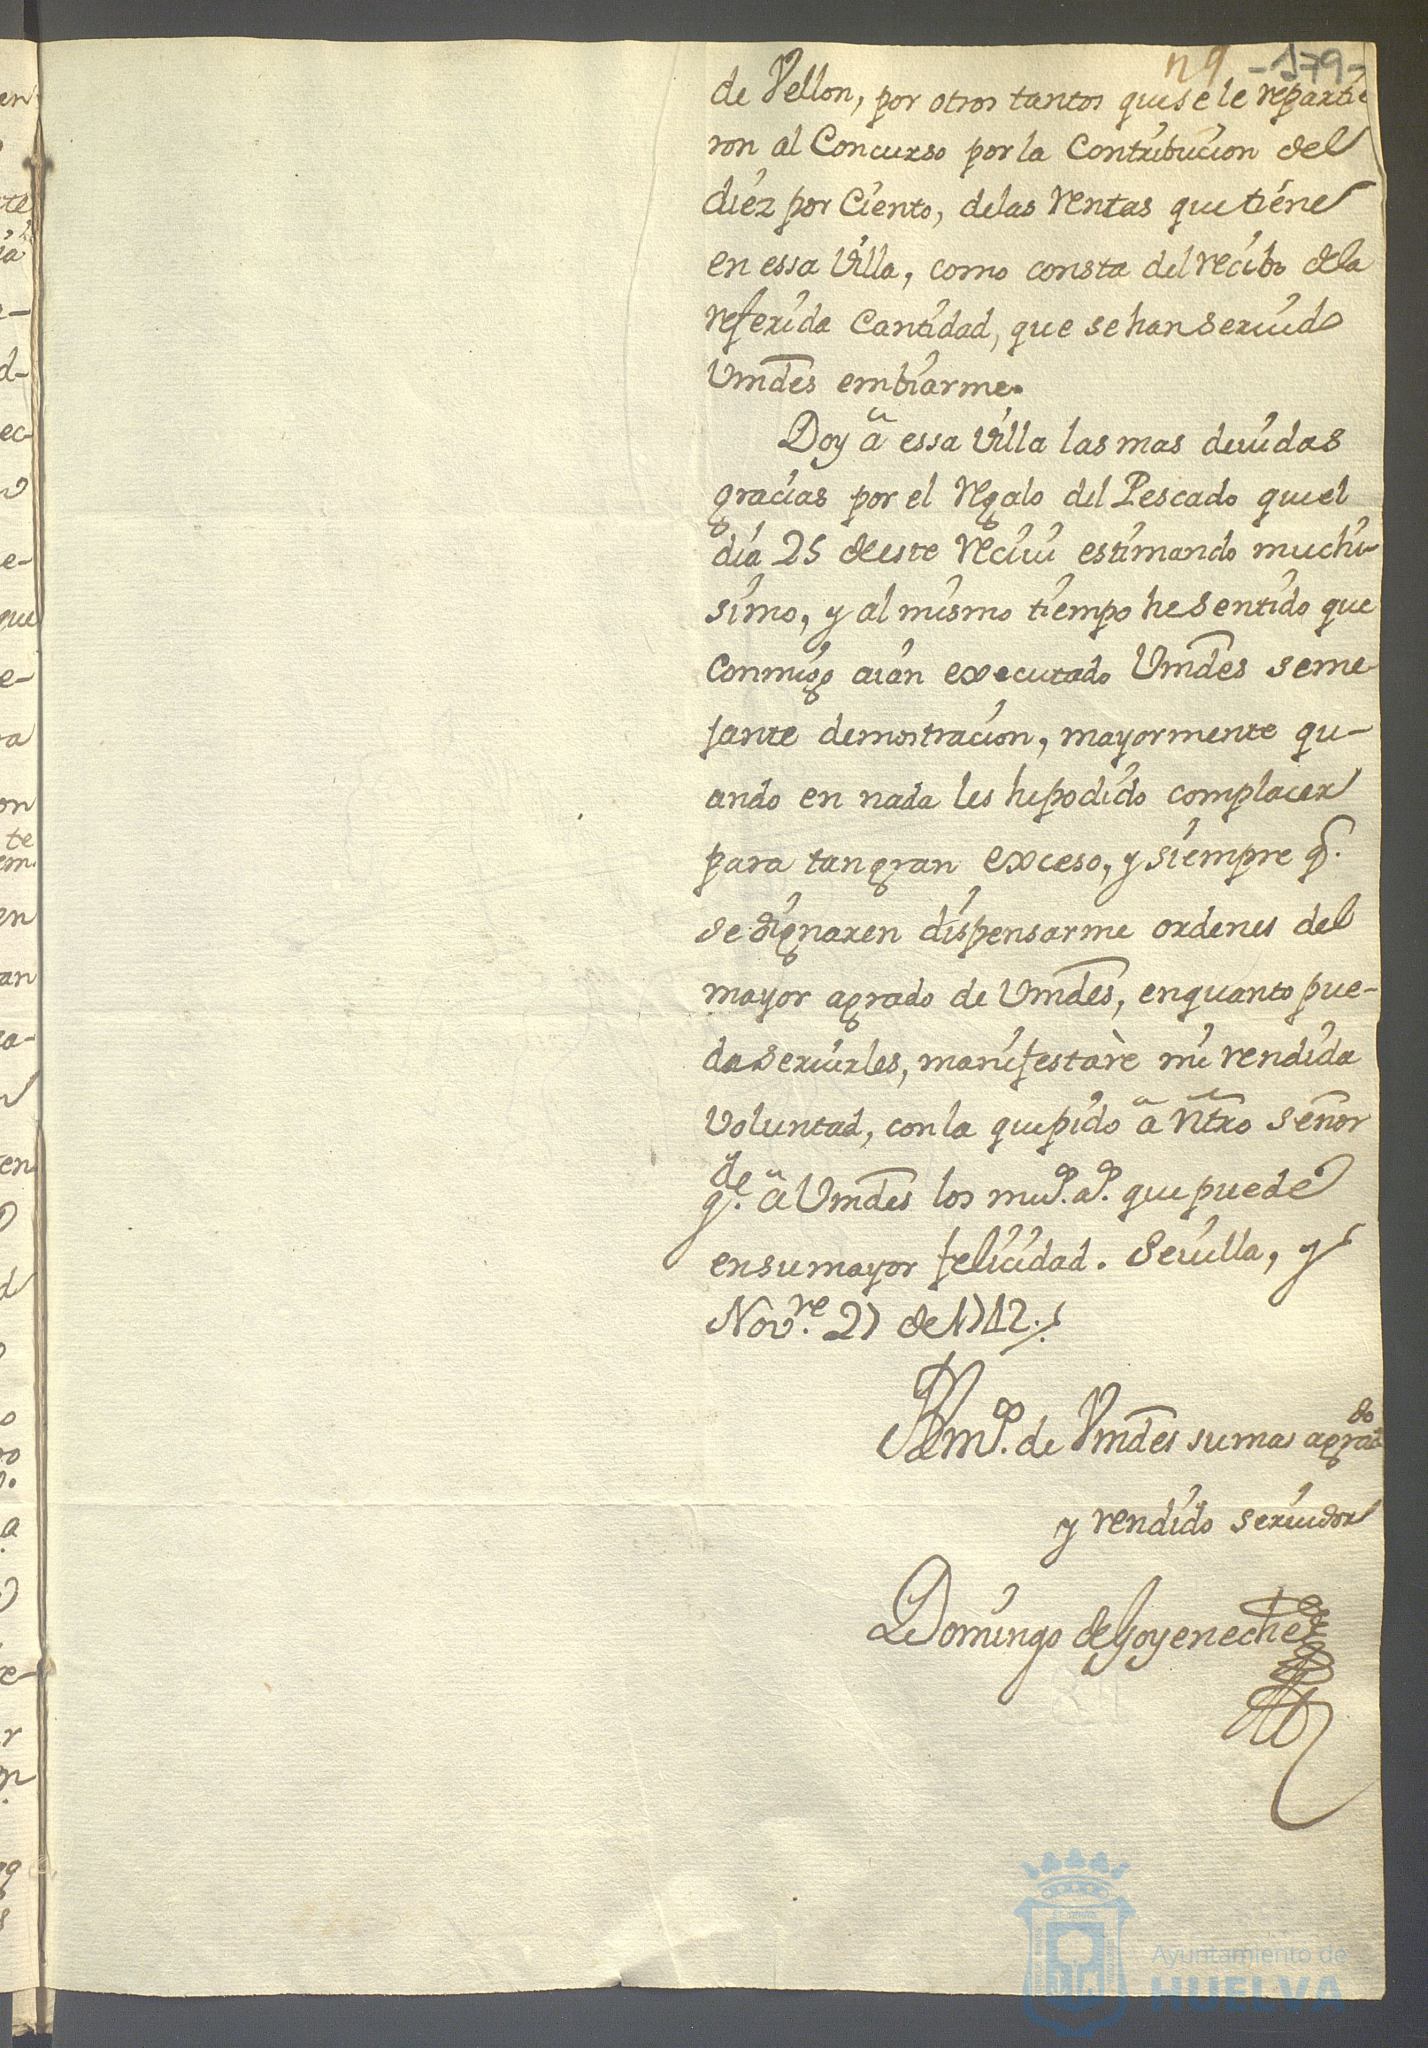 n9 -179-
de Vellon, por otros tantos que se le repartie
ron al Concurso por la Contribucion del
diez por Ciento, delas rentas que tiene
en essa Villa, como consta del recibo dela
referida Cantidad, que se han seruido
Vmdes embiarme.
Doy â essa Villa las mas deuidas
gracias por el regalo del Pescado que el
dia 25 deeste reciui estimando muchi-
simo, y al mismo tiempo he sentido que
conmigo aian executado Vmdes seme-
jante demostracion, mayormente qu-
ando en nada les he podido complacer
para tan gran exceso, y siempre q.
se dignaren dispensarme ordenes del
mayor agrado de Vmdes, en quanto pue-
da seruirles, manifestarè mi rendida
Voluntad, con la que pido â ntro señor
gde. â Vmdes los ms. as. que puede
en su mayor felicidad. Seuilla, y
Novre. 27 de 1742.
BLms. de Vmdes su mas agrado
y rendido seruidor
Domingo de Goyeneche
Ayuntamiento de
HUELVA